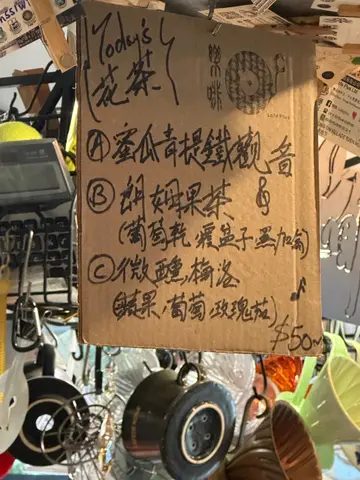 Today's
花茶
Ⓐ蜜瓜青提鐵觀音
Ⓑ朗姆果茶
(葡萄乾,覆盆子,黑加侖)
Ⓒ微醺,梅洛
(蘋果,葡萄,玫瑰茄)
$50